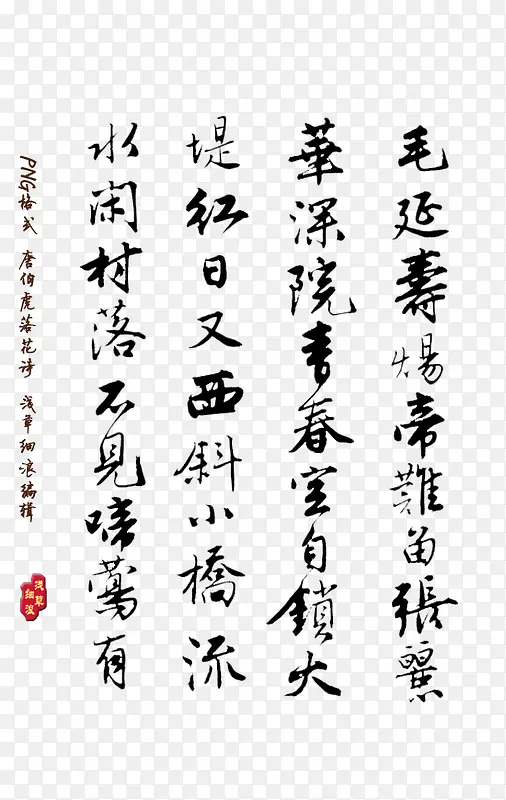 毛延壽煬帝難留張麗
華深院青春空自鎖大
堤紅日又西斜小橋流
水閑村落不見啼鶯有
PNG格式 唐伯虎落花诗 浅草细浪编辑
浅草细浪